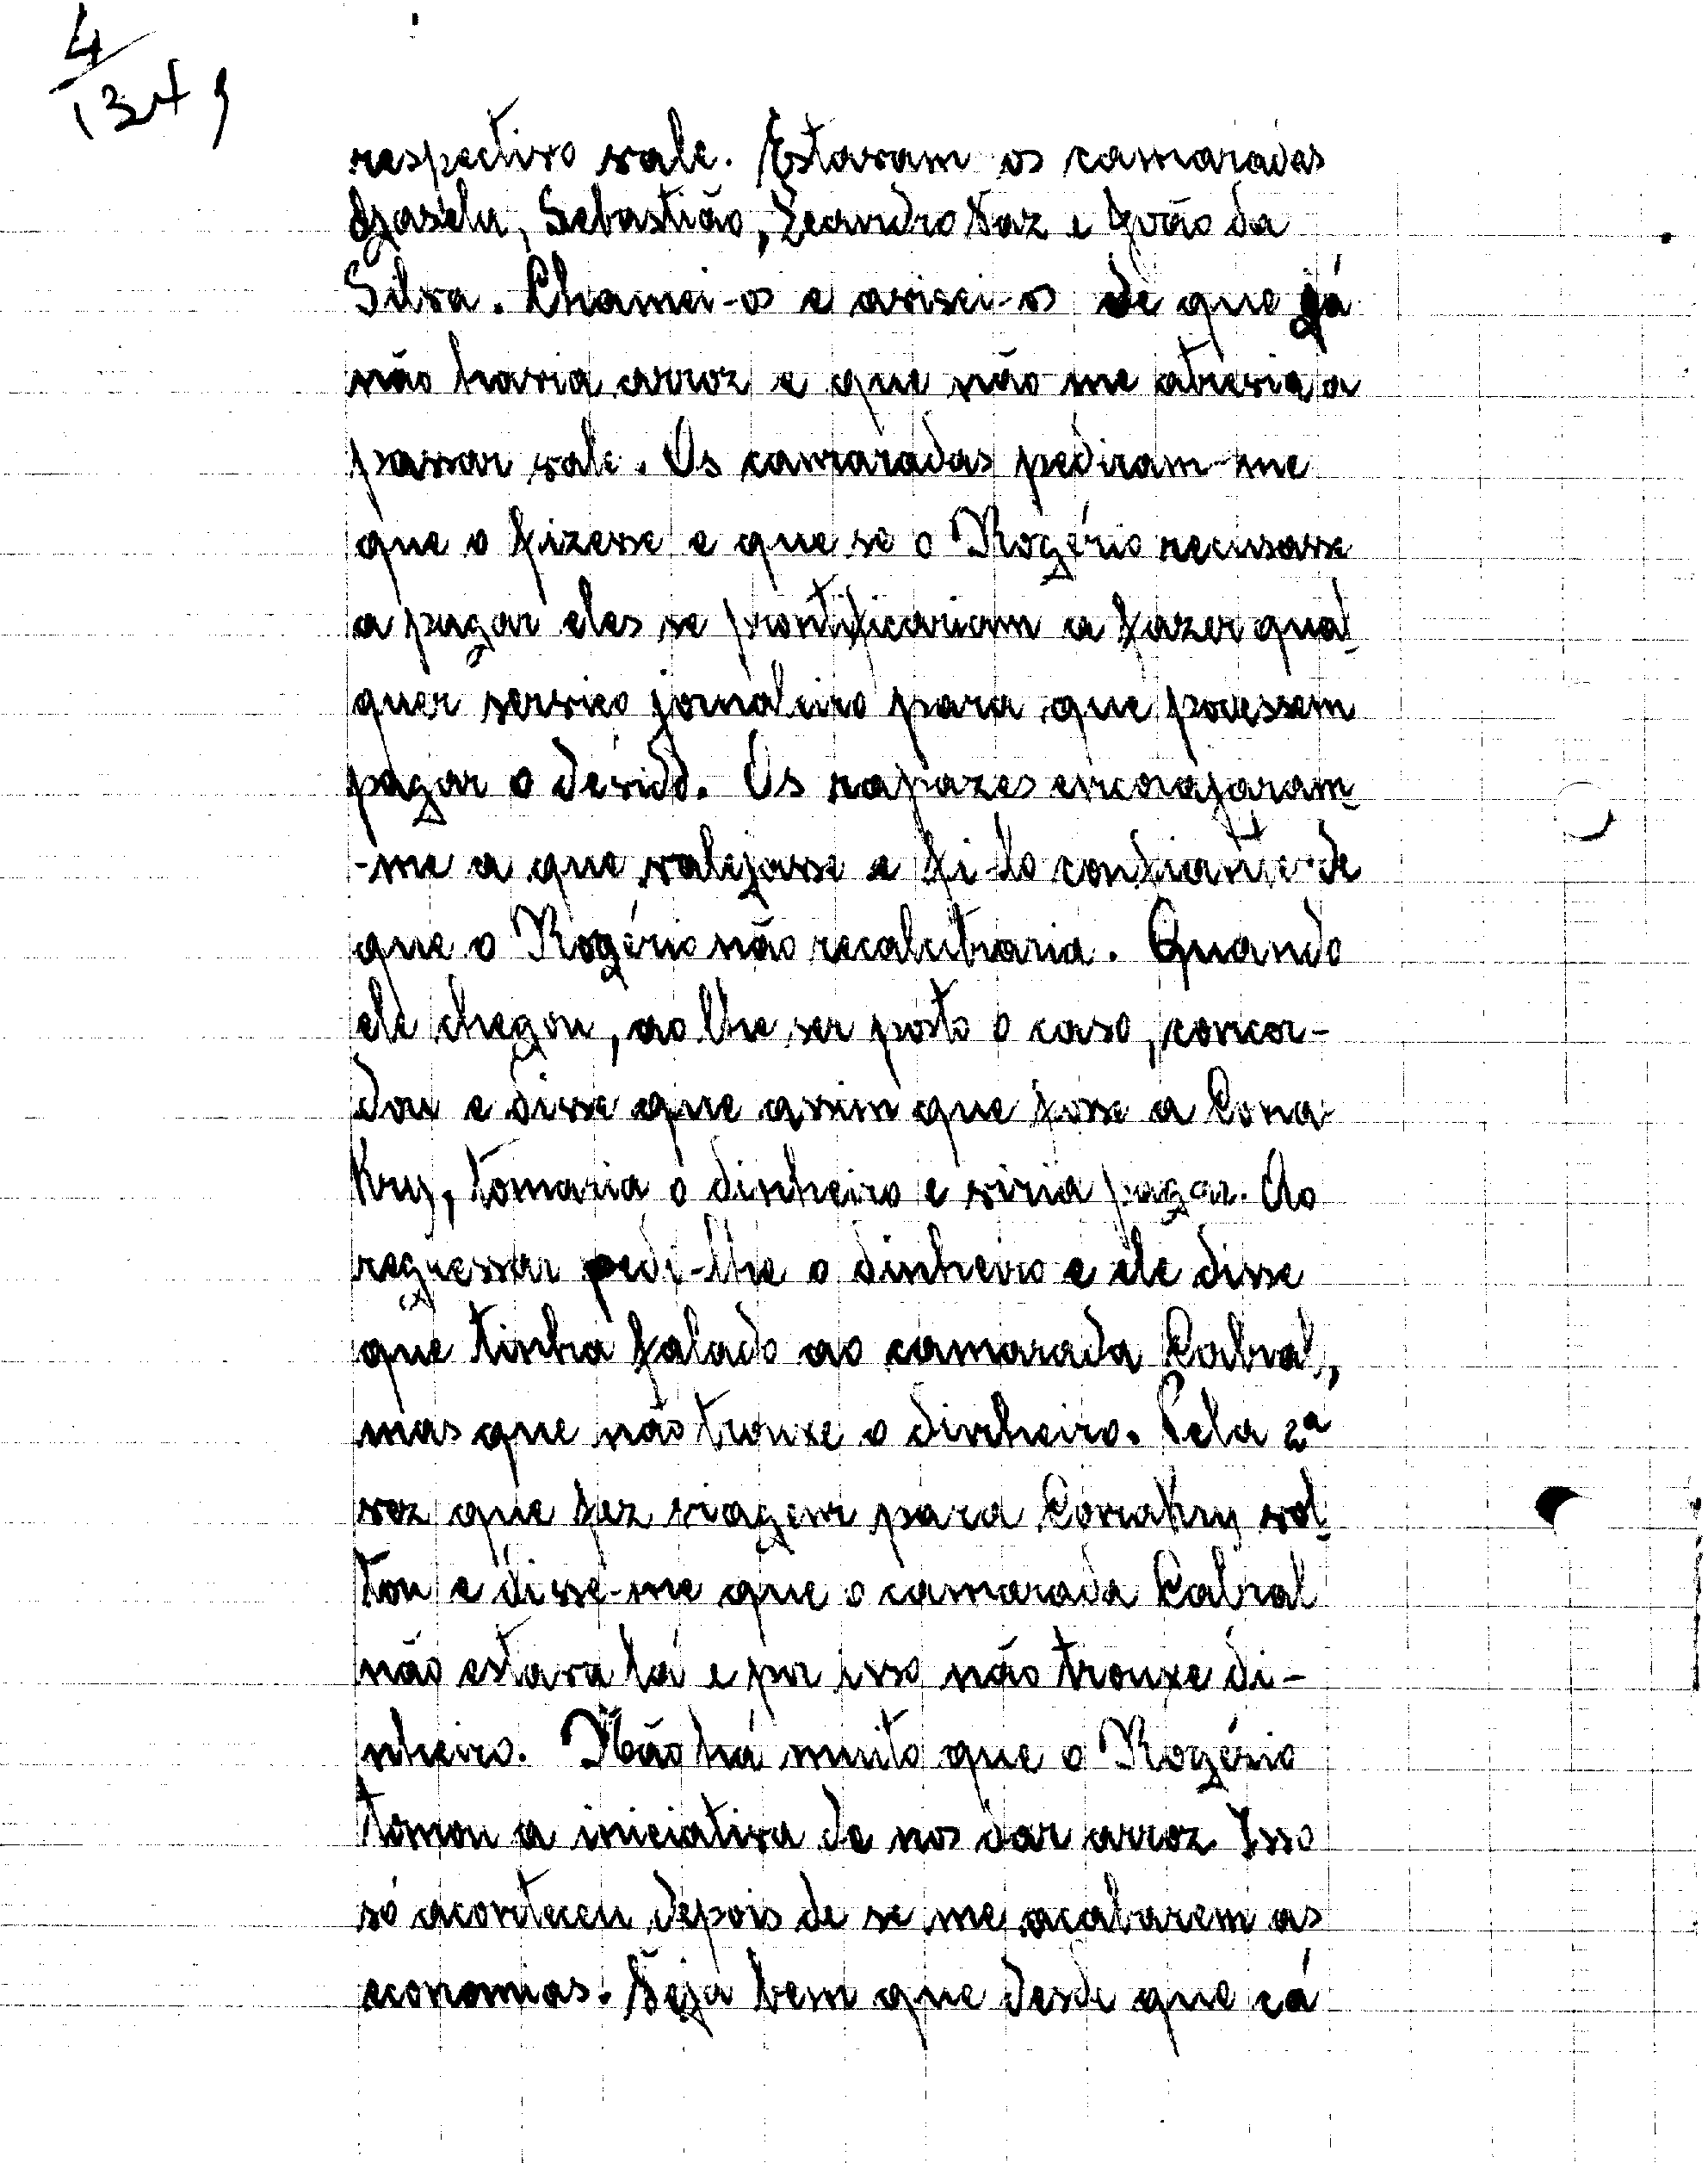 4
1349
respectivo vale. Estavam os camaradas
Sebastião, Leandro Vaz e João da
Silva. Chamei-os e avisei-os de que já
não havia arroz e que não me atrevia a
passar vale. Os camaradas pediram-me
que o fizesse e que se o Rogério recusasse
a pagar eles se prontificariam a fazer qual
quer serviço jornaleiro para que podessem
pagar o devido. Os rapazes encorajaram-
-me a que valejasse e fi-lo confiante de
que o Rogério não recalcitraria. Quando
ele chegou, ao lhe ser posto o caso, concor-
dou e disse que assim que fosse a Cona-
kry, tomaria o dinheiro e viria pagar. Ao
regressar pedi-lhe o dinheiro e ele disse
que tinha falado ao camarada Cabral,
mas que não trouxe o dinheiro. Pela 2ª
vez que fez viagem para Conakry vol-
tou e disse-me que o camarada Cabral
não estava lá e por isso não trouxe di-
nheiro. Não há muito que o Rogério
tomou a iniciativa de nos dar arroz. Isso
só aconteceu depois de se me acabarem as
economias. Veja bem que desde que cá